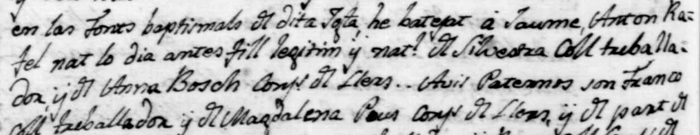 en las fonts baptismals dl dita Igla he batejat à Jaume, Anton Ra-
fel nat lo dia antes fill legitim ÿ natl dl Silvestra Coll treballa-
dor, ÿ dl Anna Bosch conjs dl Llers.. Avis Paternos son Franco
Coll treballador ÿ dl Magdalena Peus conjs dl Llers, ÿ dl part dl